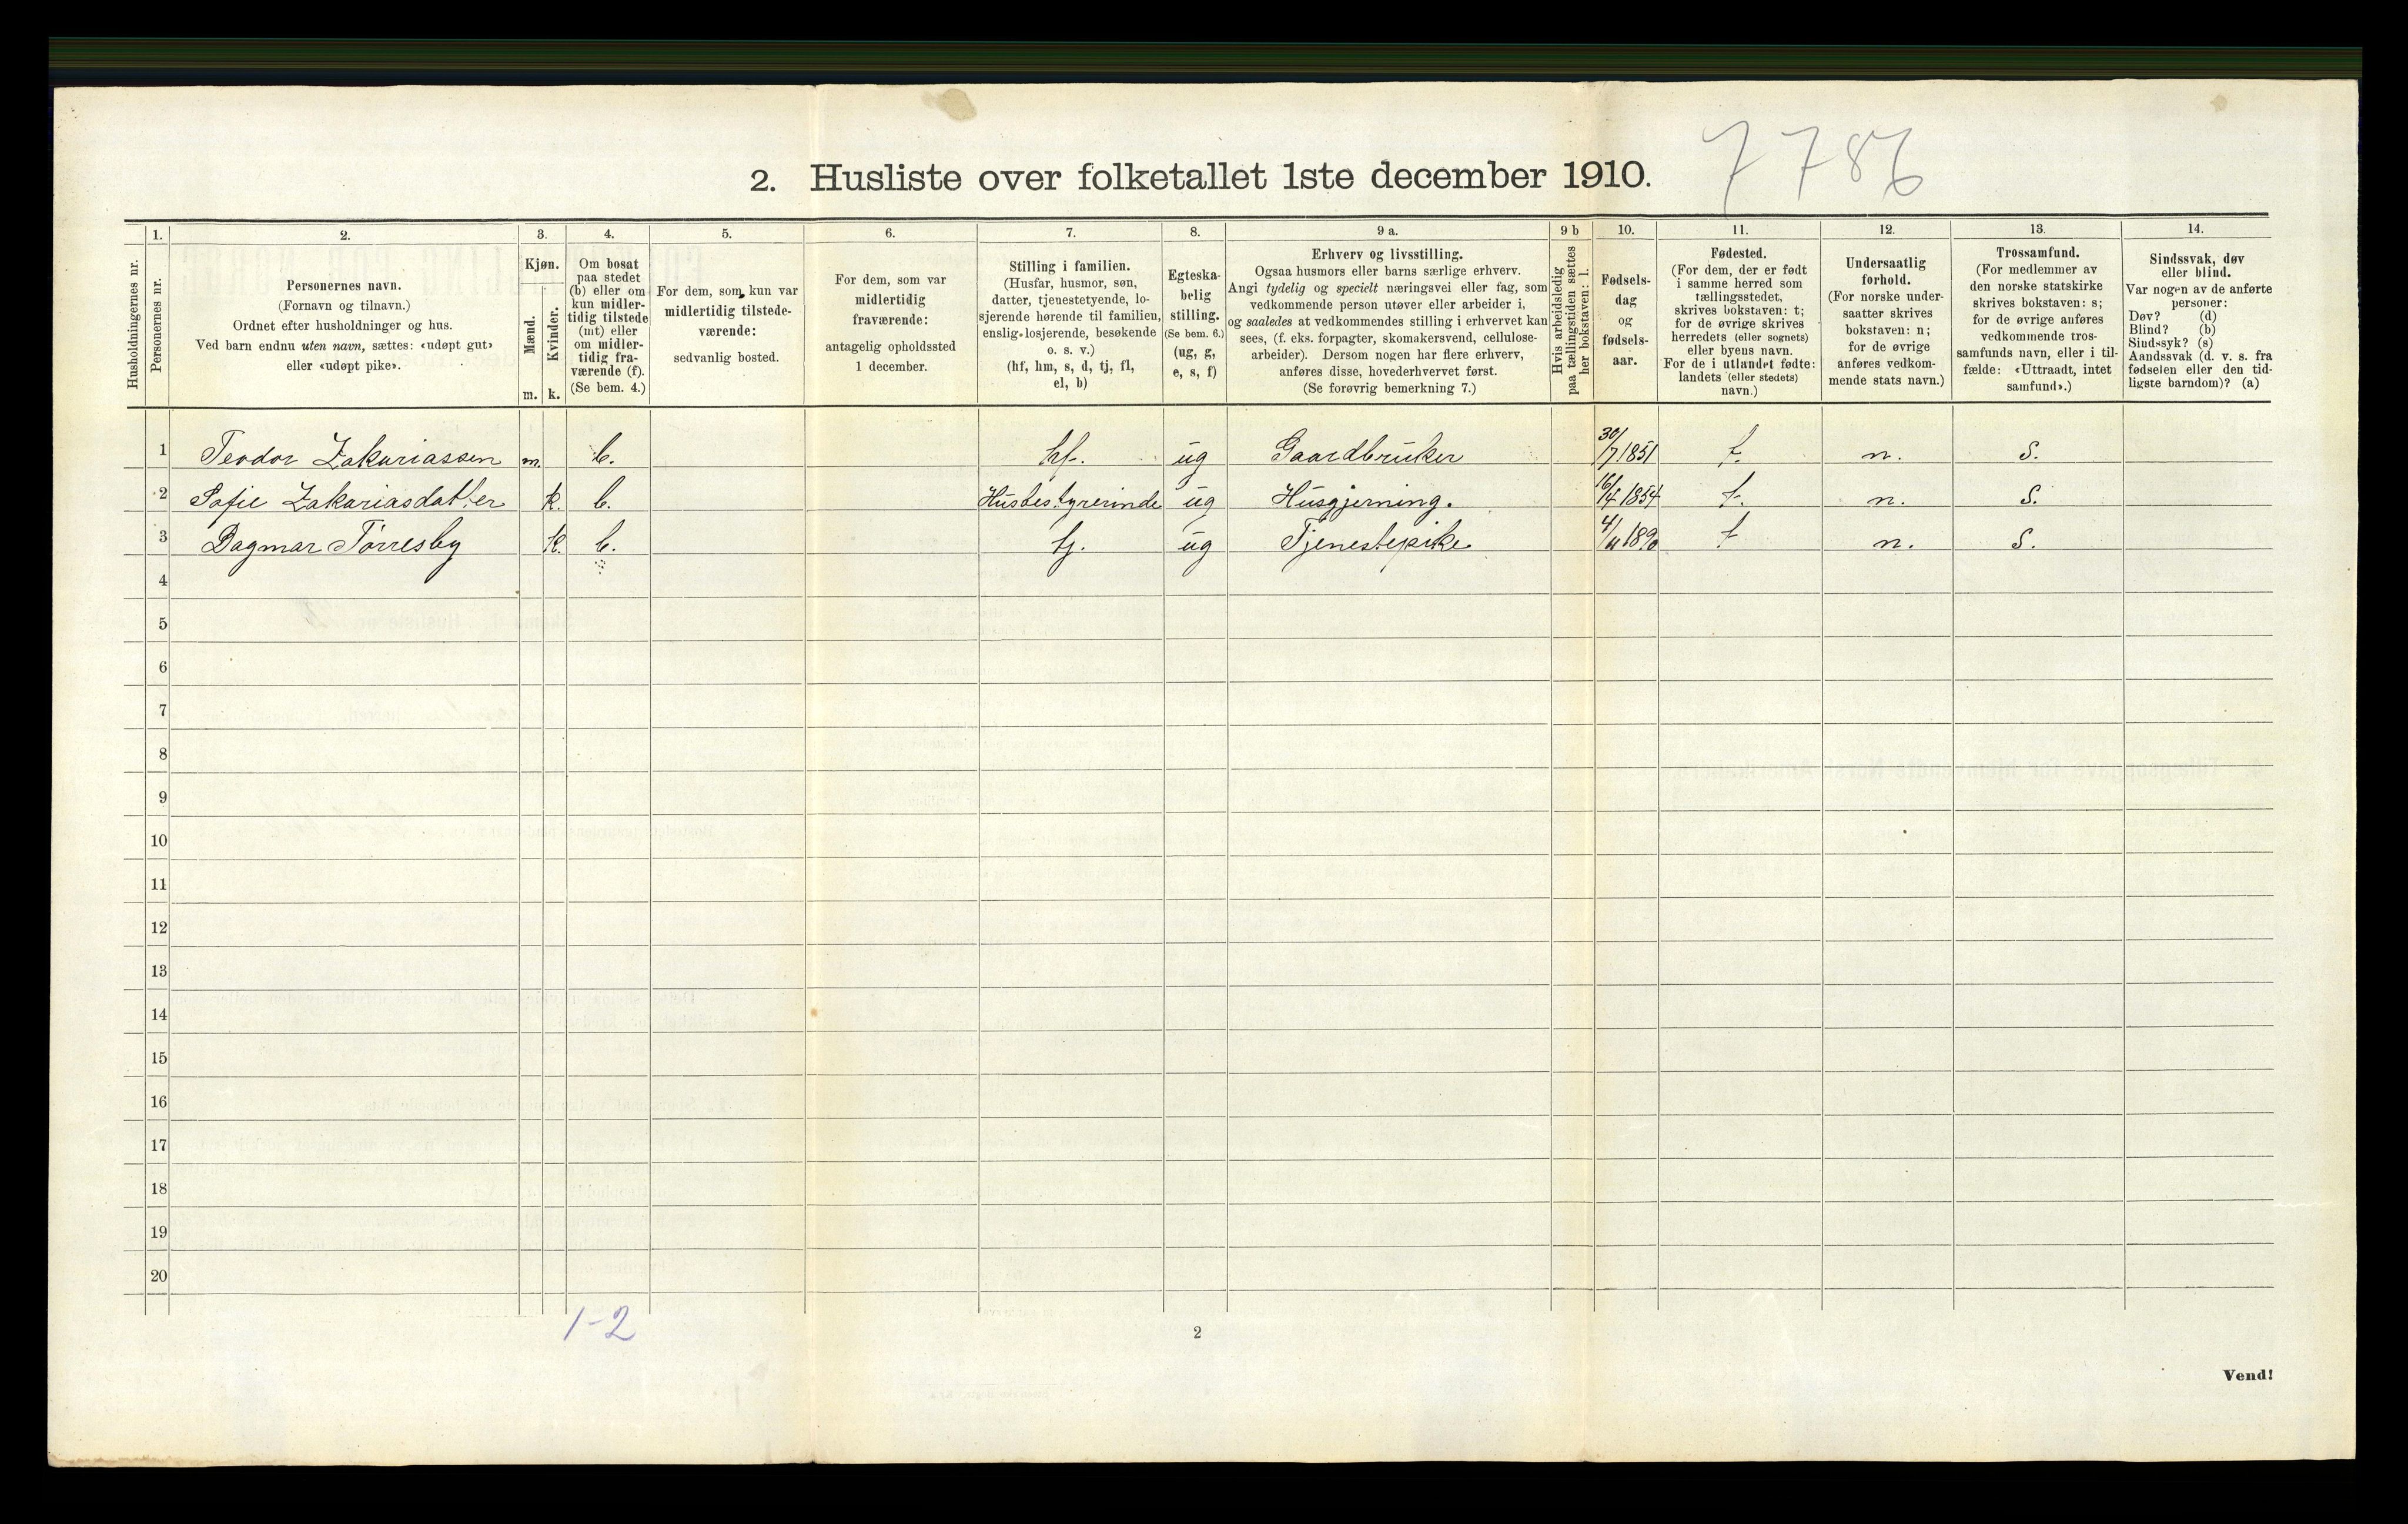 2. Husliste over folketallet 1ste december 1910.
7786
1. 2. 3. 4. 5. 6. 7. 8. 9 a. 9 b 10. 11. 12. 13. 14.
Husholdningernes nr.
Personernes nr.
Personernes navn.
(Fornavn og tilnavn.)
Ordnet efter husholdninger og hus.
Ved barn endnu uten navn, sættes: «udøpt gut»
eller «udøpt pike».
Kjøn.
Mænd.
Kvinder.
m. k.
Om bosat
paa stedet
(b) eller om
kun midler-
tidig tilstede
(mt) eller
om midler-
tidig fra-
værende (f).
(Se bem. 4.)
For dem, som kun var
midlertidig tilstede-
værende:
sedvanlig bosted.
For dem, som var
midlertidig
fraværende:
antagelig opholdssted
1 december.
Stilling i familien.
(Husfar, husmor, søn,
datter, tjenestetyende, lo-
sjerende hørende til familien,
enslig losjerende, besøkende
o. s. v.)
(hf, hm, s, d, tj, fl,
el, b)
Egteska-
belig
stilling.
(Se bem. 6.)
(ug, g,
e, s, f)
Erhverv og livsstilling.
Ogsaa husmors eller barns særlige erhverv.
Angi tydelig og specielt næringsvei eller fag, som
vedkommende person utøver eller arbeider i,
og saaledes at vedkommendes stilling i erhvervet kan
sees, (f. eks. forpagter, skomakersvend, cellulose-
arbeider). Dersom nogen har flere erhverv,
anføres disse, hovederhvervet først.
(Se forøvrig bemerkning 7.)
Hvis arbeidsledig
paa tællingstiden sættes
her bokstaven: l.
Fødsels-
dag
og
fødsels-
aar.
Fødested.
(For dem, der er født
i samme herred som
tællingsstedet,
skrives bokstaven: t;
for de øvrige skrives
herredets (eller sognets)
eller byens navn.
For de i utlandet fødte:
landets (eller stedets)
navn.)
Undersaatlig
forhold.
(For norske under-
saatter skrives
bokstaven: n;
for de øvrige
anføres vedkom-
mende stats navn.)
Trossamfund.
(For medlemmer av
den norske statskirke
skrives bokstaven: s;
for de øvrige anføres
vedkommende tros-
samfunds navn, eller i til-
fælde: «Uttraadt, intet
samfund».)
Sindssvak, døv
eller blind.
Var nogen av de anførte
personer:
Døv? (d)
Blind? (b)
Sindssyk? (s)
Aandssvak (d. v. s. fra
fødselen eller den tid-
ligste barndom)? (a)
1 Teodor Zakariassen m. b. hf. ug Gaardbruker 30/7 1851 t. n. s.
2 Sofie Zakariasdatter k. b. Husbestyrerinde ug Husgjerning. 16/4 1854 t. n. s.
3 Dagmar Törresby k. b. tj. ug Tjenestepike 4/11 1890 t n. s.
4
5
6
7
8
9
10
11
12
13
14
15
16
17
18
19
20
1-2
2
Vend!